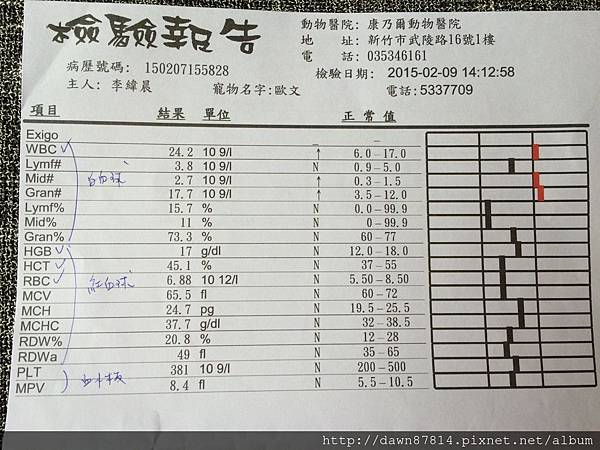 檢驗報告
動物醫院: 康乃爾動物醫院
地 址: 新竹市武陵路16號1樓
電 話: 035346161
病歷號碼: 150207155828
檢驗日期: 2015-02-09 14:12:58
主人: 李緯晨 寵物名字:歐文 電話:5337709
項目 結果 單位 正 常 值
Exigo _ –
WBC 24.2 10 9/l ↑ 6.0 – 17.0
Lymf# 3.8 10 9/l N 0.9 – 5.0
Mid# 2.7 10 9/l ↑ 0.3 – 1.5
白血球
Gran# 17.7 10 9/l ↑ 3.5 – 12.0
Lymf% 15.7 % N 0.0 – 99.9
Mid% 11 % N 0 – 99.9
Gran% 73.3 % N 60 – 77
HGB 17 g/dl N 12.0 – 18.0
HCT 45.1 % N 37 – 55
RBC 6.88 10 12/l N 5.50 – 8.50
紅血球
MCV 65.5 fl N 60 – 72
MCH 24.7 pg N 19.5 – 25.5
MCHC 37.7 g/dl N 32 – 38.5
RDW% 20.8 % N 12 – 28
RDWa 49 fl N 35 – 65
PLT 381 10 9/l N 200 – 500
血小板
MPV 8.4 fl N 5.5 – 10.5
http://dawn87814.pixnet.net/album